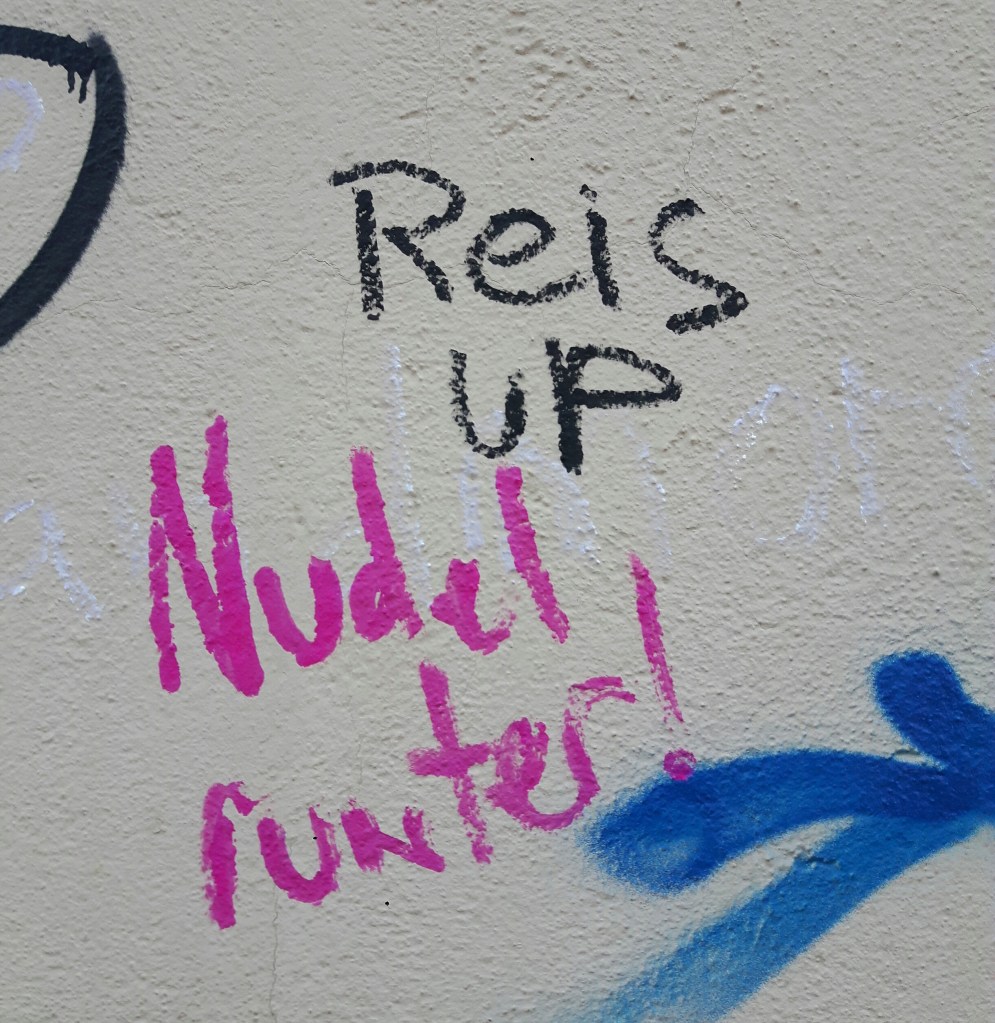 Reis
UP
Nudel
runter!